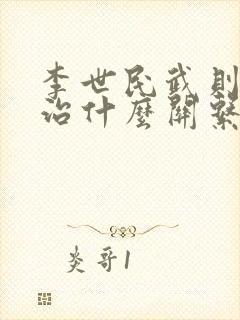 李世民武則
治什麼關繫
炎哥1